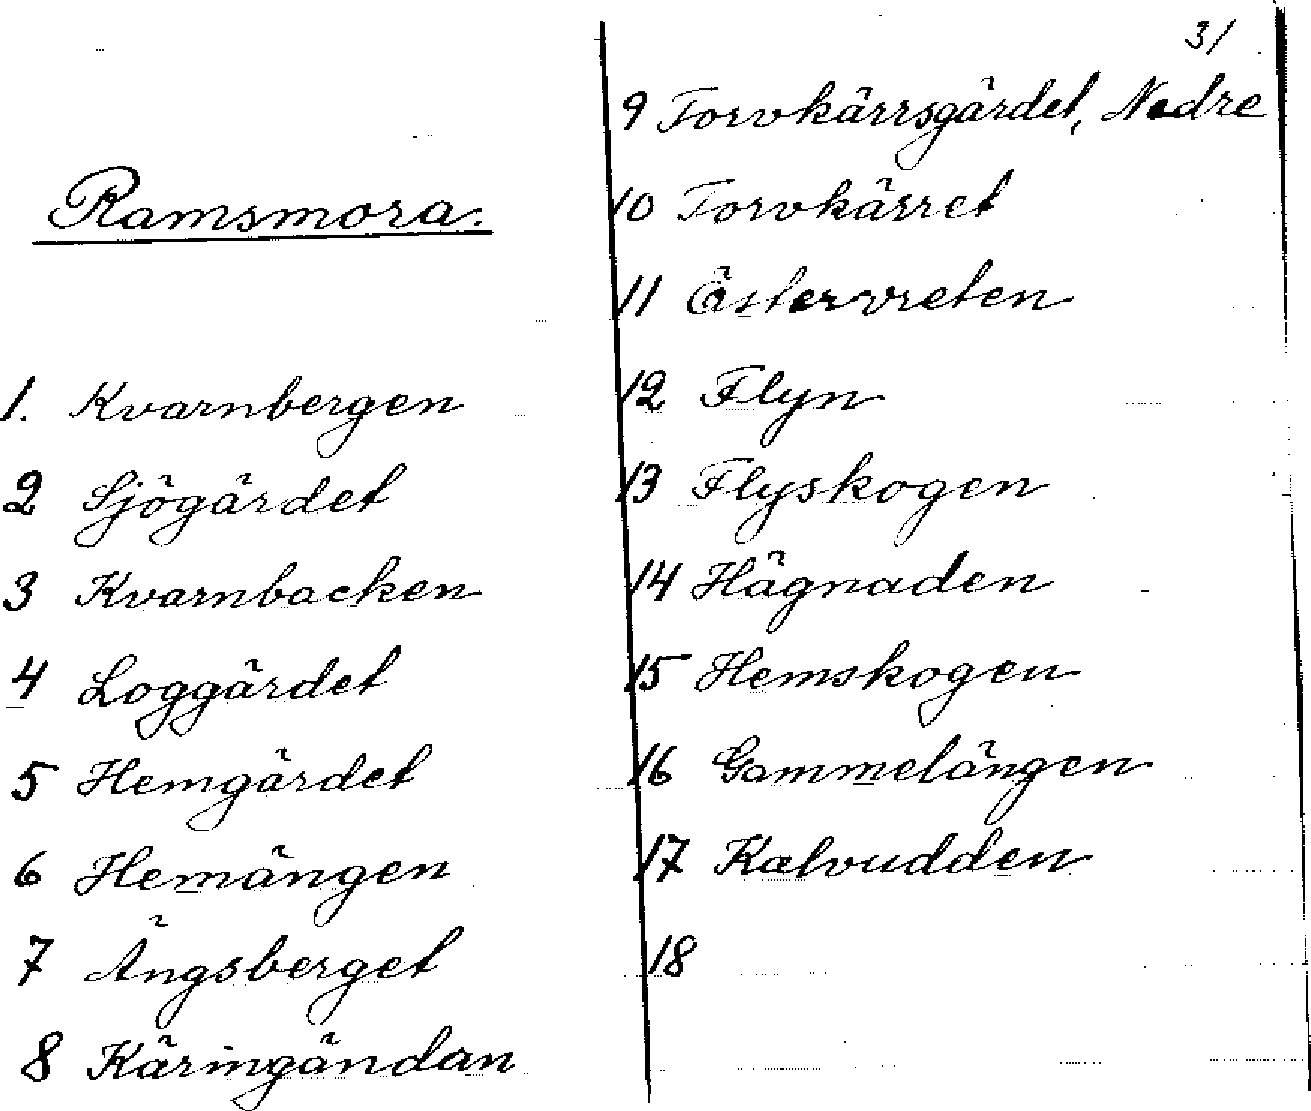 Ramsmora.
1. Kvarnbergen
2 Sjögärdet
3 Kvarnbacken
4 Loggärdet
5 Hemgärdet
6 Hemängen
7 Ängsberget
8 Käringändan
31
9 Torvkärrsgärdet, Nedre
10 Torvkärret
11 Östervreten
12 Flyn
13 Flyskogen
14 Hägnaden
15 Hemskogen
16 Gammelängen
17 Kalvudden
18